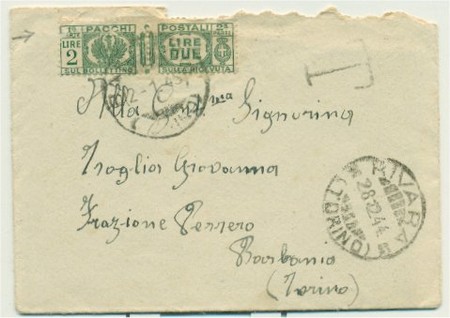 PACCHI POSTALI
LIRE 2 LIRE DUE
SUL BOLLETTINO SULLA RICEVUTA
T
Alla Signorina
Troglia Giovanna
Frazione Perrero
Barbania
(Torino)
RIVARA
28.12.44
(TORINO)